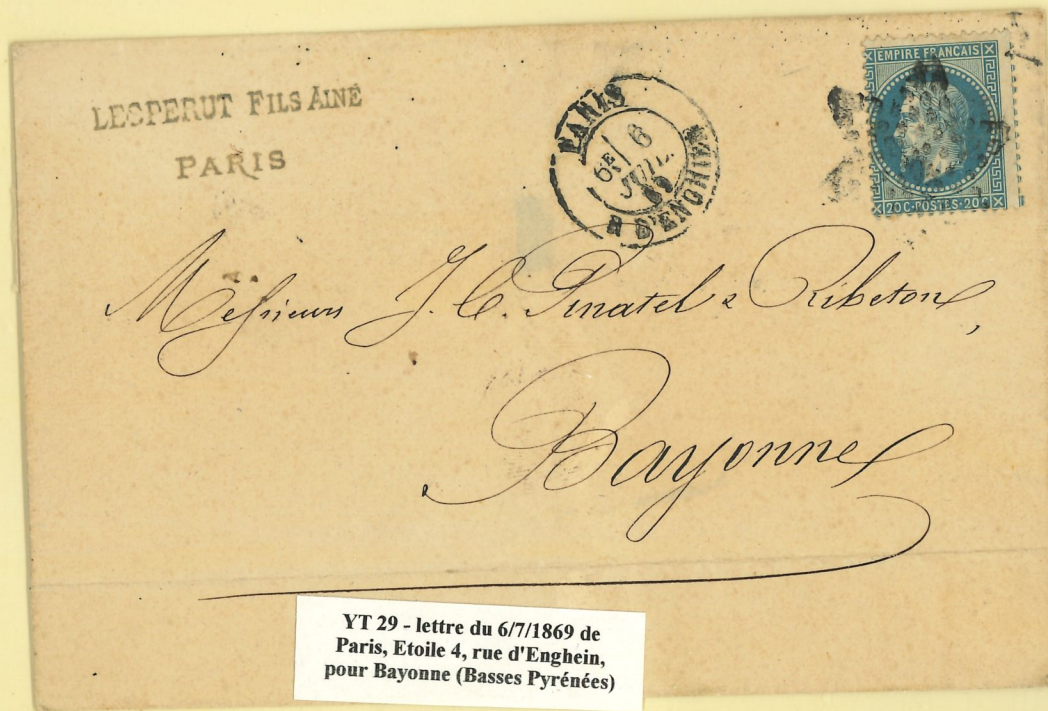 LESPERUT FILS AINÉ
PARIS
PARIS
6E
6
JUIL.
69
R D'ENGHIEN
EMPIRE FRANÇAIS
20 C·POSTES·20 C
Messieurs J. C. Pinatel & Ribeton,
Bayonne
YT 29 - lettre du 6/7/1869 de
Paris, Etoile 4, rue d'Enghein,
pour Bayonne (Basses Pyrénées)